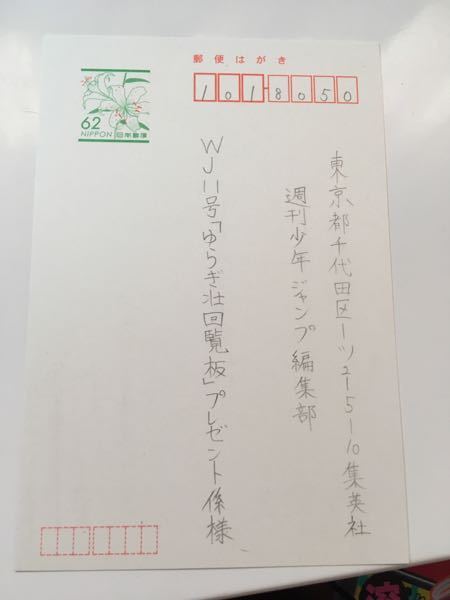 郵便はがき
1018050
62
NIPPON 日本郵便
東京都千代田区一ツ2-5-10集英社
週刊少年ジャンプ編集部
WJ11号「ゆらぎ荘回覧板」プレゼント係様